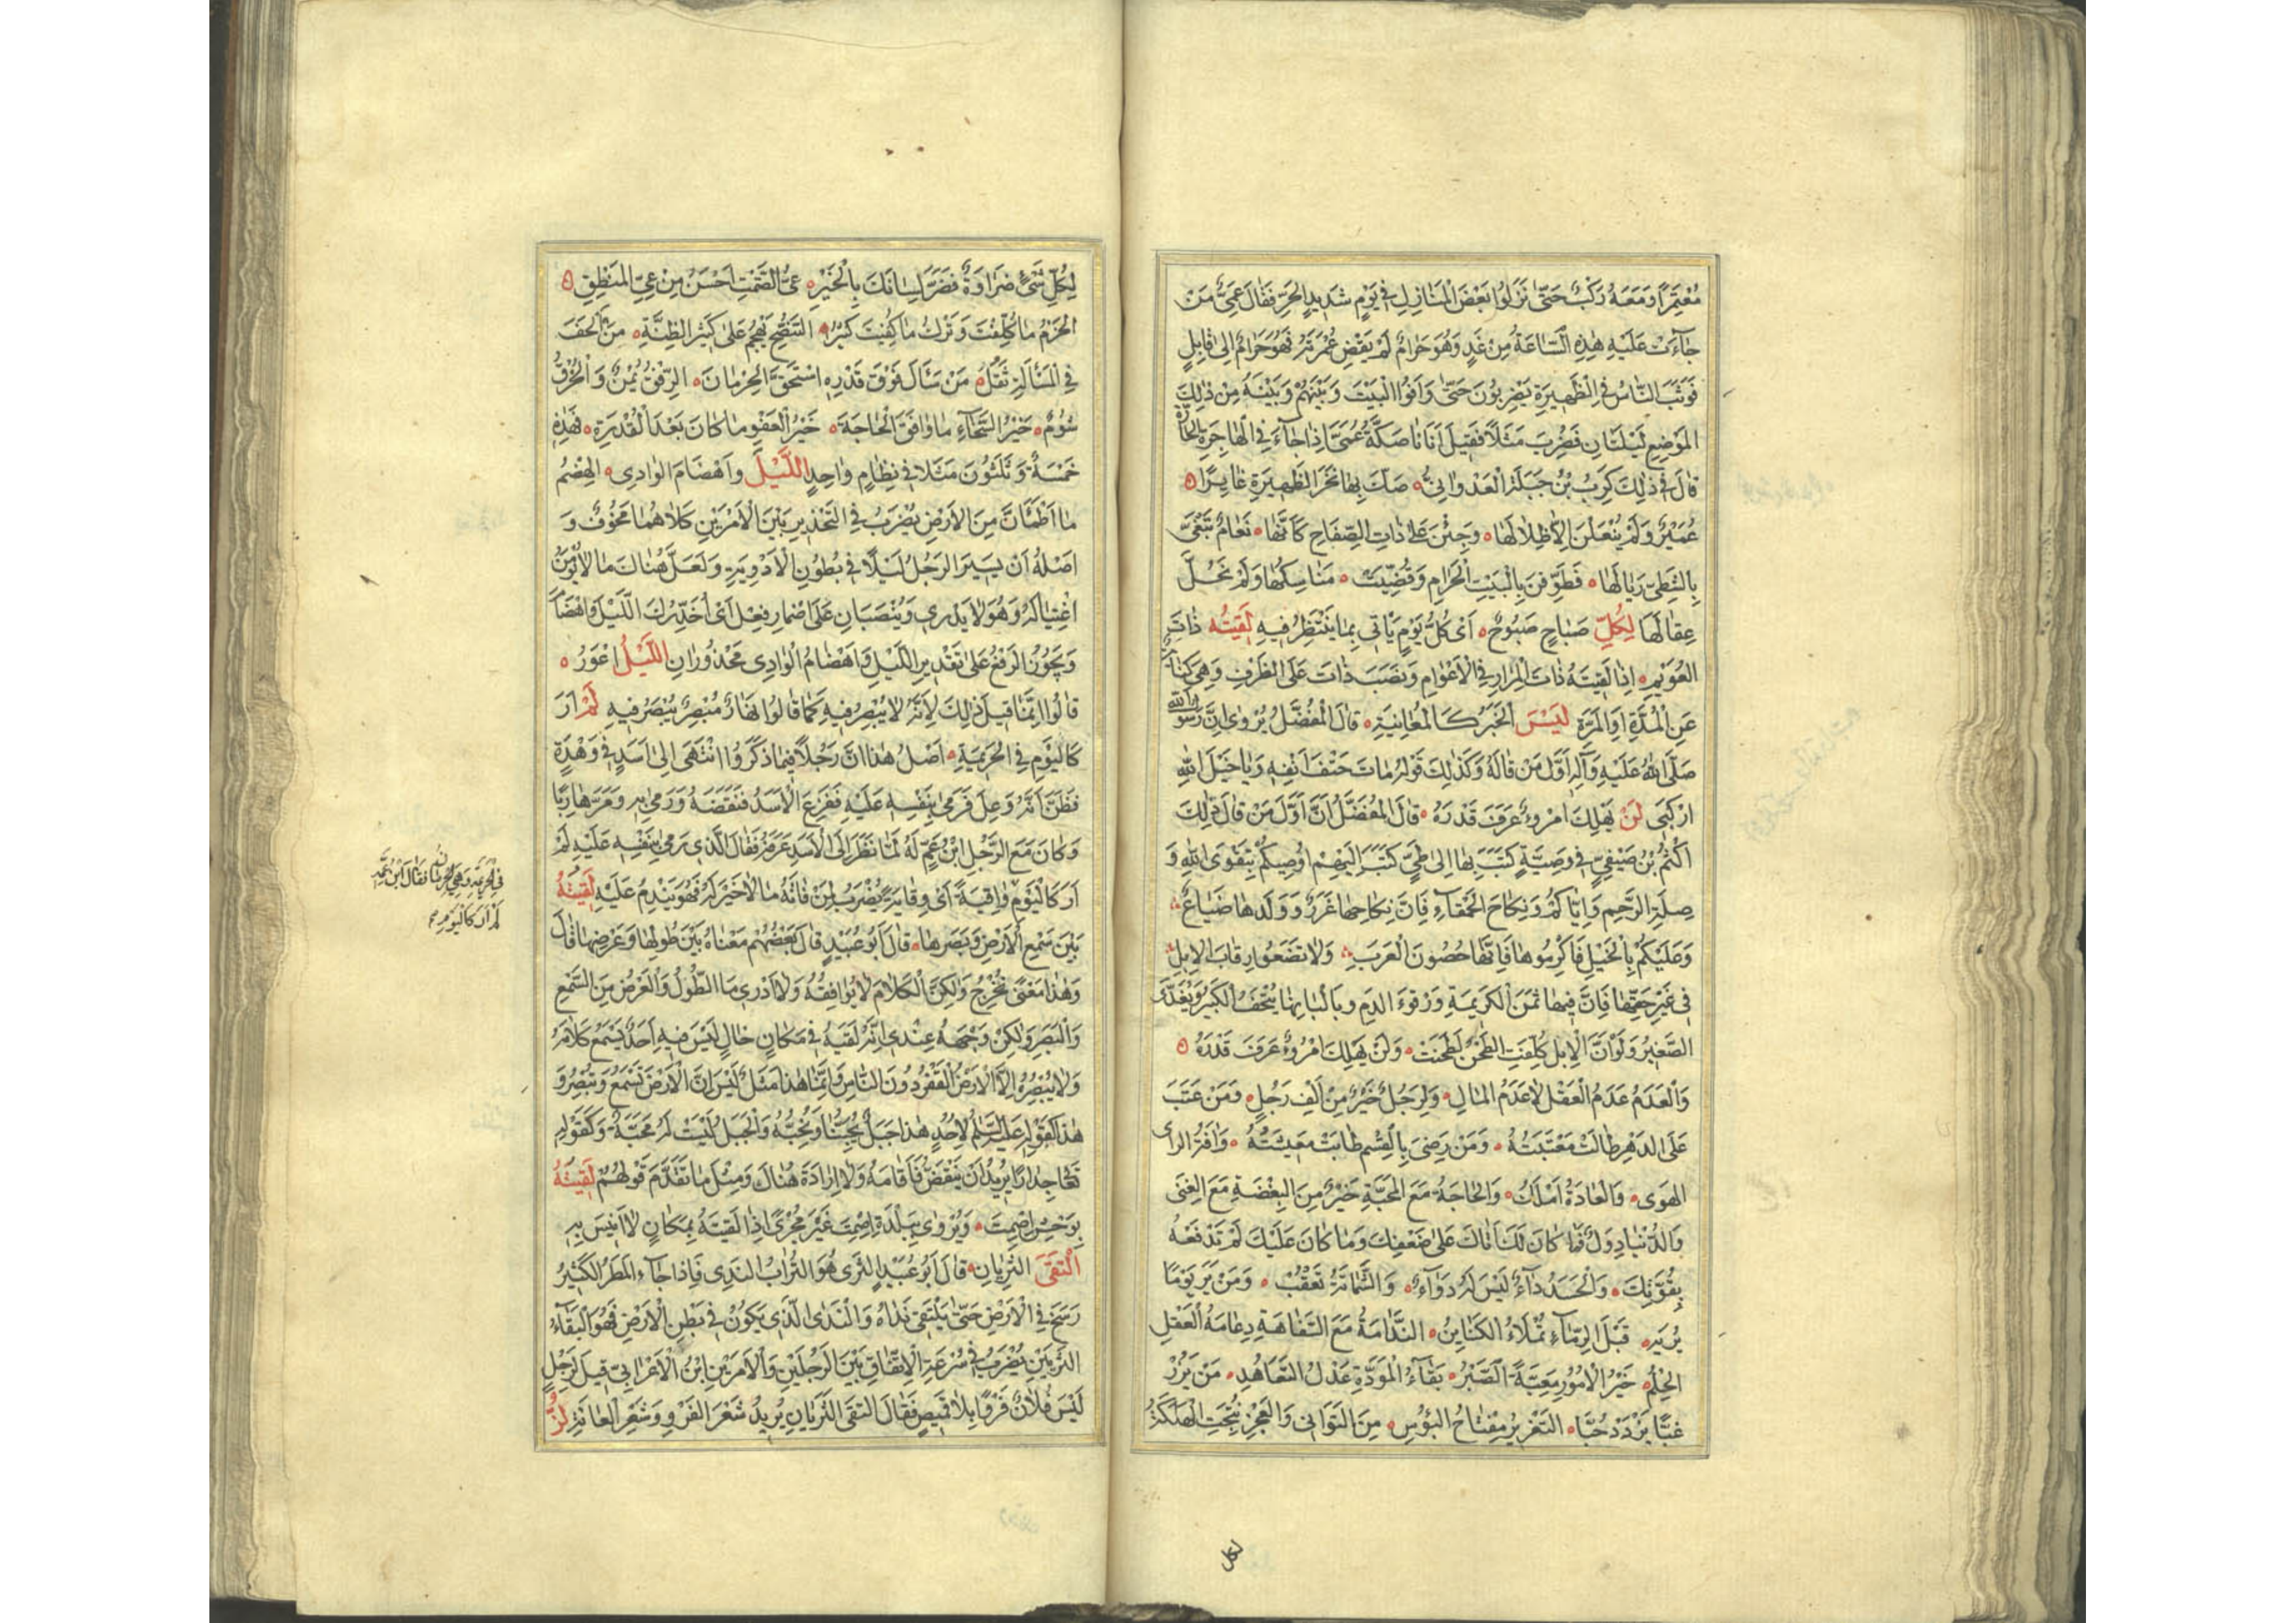 مُعْتَمِرًا وَمَعَهُ رَكْبٌ حَتّىٰ نَزَلُوا بَعْضَ الْمَنَازِلِ فِي يَوْمٍ شَدِيدِ الْحَرِّ فَقَالَ عُمَيٌّ مَنْ
جَآءَتْ عَلَيْهِ هٰذِهِ السَّاعَةُ مِنْ غَدٍ وَهُوَ حَرَامٌ لَمْ يَقْضِ عُمْرَتَهُ فَهُوَ حَرَامٌ اِلىٰ قَابِلٍ
فَوَثَبَ النَّاسُ فِي الظَّهِيرَةِ يَضْرِبُونَ حَتّىٰ وَافَوُا الْبَيْتَ وَبَيْنَهُمْ وَبَيْنَهُ مِنْ ذٰلِكَ
الْمَوْضِعِ لَيْلَتَانِ فَضُرِبَ مَثَلًا فَقِيلَ اَتَانَا صَكَّةَ عُمَيٍّ اِذَا جَآءَ فِي الْهَاجِرَةِ الْحَارَّةِ
قَالَ فِي ذٰلِكَ كَرِبُ بْنُ جَبَلَةَ الْعَدْوَانِيُّ صَكَّ بِهَا نَحْرَ الظَّهِيرَةِ غَايِرًا
عُمَيْرٌ وَلَمْ يُنْعَلْنَ اِلَّا ظِلَالَهَا وَجِئْنَ عَلىٰ ذَاتِ الصِّفَاحِ كَاَنَّهَا نَعَامٌ تَبَغّىٰ
بِالشَّظِيِّ رِيَالَهَا فَطَوَّفْنَ بِالْبَيْتِ الْحَرَامِ وَقُضِّيَتْ مَنَاسِكُهَا وَلَمْ تَحُلَّ
عِقَالَهَا لِكُلِّ صَبَاحٍ صَبُوحٌ اَىْ كُلُّ يَوْمٍ يَأْتِي بِمَا يُنْتَظَرُ فِيهِ لَقِيتُهُ ذَاتَ
الْعُوَيْمِ اِذَا لَقِيتَهُ ذَاتَ الْمِرَارِ فِي الْاَعْوَامِ وَنَصَبَ ذَاتَ عَلَى الظَّرْفِ وَهِيَ كِنَايَةٌ
عَنِ الْمُدَّةِ اَوِ الْمَرَّةِ لَيْسَ الْخَبَرُ كَالْمُعَايَنَةِ قَالَ الْمُفَضَّلُ يُرْوىٰ اِنَّ رَسُولَ اللّٰهِ
صَلَّى اللّٰهُ عَلَيْهِ وَآلِهِ اَوَّلُ مَنْ قَالَهُ وَكَذٰلِكَ قَوْلُهُ مَاتَ حَتْفَ اَنْفِهِ وَيَا خَيْلَ اللّٰهِ
ارْكَبِي لَنْ يَهْلِكَ امْرُوءٌ عَرَفَ قَدْرَهُ قَالَ الْمُفَضَّلُ اِنَّ اَوَّلَ مَنْ قَالَ ذٰلِكَ
اَكْثَمُ بْنُ صَيْفِيٍّ فِي وَصِيَّةٍ كَتَبَ بِهَا اِلىٰ طَيٍّ كَتَبَ اِلَيْهِمْ اُوصِيكُمْ بِتَقْوَى اللّٰهِ وَ
صِلَةِ الرَّحِمِ وَاِيَّاكُمْ وَنِكَاحَ الْحَمْقَاءِ فَاِنَّ نِكَاحَهَا غَرَرٌ وَوَلَدَهَا ضَيَاعٌ
وَعَلَيْكُمْ بِالْخَيْلِ فَاَكْرِمُوهَا فَاِنَّهَا حُصُونَ الْعَرَبِ وَلَا تَضَعُوا رِقَابَ الْاِبِلِ
فِي غَيْرِ حَقِّهَا فَاِنَّ فِيهَا ثَمَنَ الْكَرِيمَةِ وَرَقُوءَ الدَّمِ وَبِاَلْبَانِهَا يُتْحَفُ الْكَبِيرُ وَيُغَذَّى
الصَّغِيرُ وَلَوْ اَنَّ الْاِبِلَ كُلِّفَتِ الطَّحْنَ لَطَحَنَتْ وَلَنْ يَهْلِكَ امْرُوءٌ عَرَفَ قَدْرَهُ
وَالْعَدَمُ عَدَمُ الْعَقْلِ لَا عَدَمُ الْمَالِ وَلَرَجُلٌ خَيْرٌ مِنْ اَلْفِ رَجُلٍ وَمَنْ عَتَبَ
عَلَى الدَّهْرِ طَالَتْ مَعْتَبَتُهُ وَمَنْ رَضِيَ بِالْقِسْمِ طَابَتْ مَعِيشَتُهُ وَآفَةُ الرَّأْىِ
الْهَوٰى وَالْعَادَةُ اَمْلَكُ وَالْحَاجَةُ مَعَ الْمَحَبَّةِ خَيْرٌ مِنَ الْبِغْضَةِ مَعَ الْغِنٰى
وَالدُّنْيَا دِوَلٌ فَمَا كَانَ لَكَ اَتَاكَ عَلىٰ ضَعْفِكَ وَمَا كَانَ عَلَيْكَ لَمْ تَدْفَعْهُ
بِقُوَّتِكَ وَالْحَسَدُ دَآءٌ لَيْسَ لَهُ دَوَآءٌ وَالشَّمَاتَةُ تُعْقِبُ وَمَنْ يَرَ يَوْمًا
يُرَ بِهِ قَبْلَ الرِّمَآءِ تُمْلَاءُ الْكَنَايِنُ النَّدَامَةُ مَعَ السَّفَاهَةِ دِعَامَةُ الْعَقْلِ
الْحِلْمُ خَيْرُ الْاُمُورِ مَغَبَّةً الصَّبْرُ بَقَآءُ الْمَوَدَّةِ عَدْلُ التَّعَاهُدِ مَنْ يَزُرْ
غِبًّا يَزْدَدْ حُبًّا التَّغْرِيرُ مِفْتَاحُ الْبُؤْسِ مِنَ التَّوَانِي وَالْعَجْزِ نُتِجَتِ الْهَلَكَةُ
لكل
لِكُلِّ شَىْءٍ ضَرَاوَةٌ فَضَرِّ لِسَانَكَ بِالْخَيْرِ عِىُّ الصَّمْتِ اَحْسَنُ مِنْ عِىِّ الْمَنْطِقِ
الْحَزْمُ مَا كُلِّفْتَ وَتَرْكُ مَا كُفِيتَ كَثِيرُ التَّنَصُّحِ يَهْجُمُ عَلىٰ كَثِيرِ الظِّنَّةِ مَنْ اَلْحَفَ
فِي الْمَسْأَلَةِ ثَقُلَ مَنْ سَأَلَ فَوْقَ قَدْرِهِ اسْتَحَقَّ الْحِرْمَانَ الرِّفْقُ يُمْنٌ وَالْخُرْقُ
شُومٌ خَيْرُ السَّخَآءِ مَا وَافَقَ الْحَاجَةَ خَيْرُ الْعَفْوِ مَا كَانَ بَعْدَ الْقُدْرَةِ فَهٰذِهِ
خَمْسَةٌ وَثَلٰثُونَ مَثَلًا فِي نِظَامٍ وَاحِدٍ اللَّيْلَ وَاَهْضَامَ الْوَادِى الْهِضْمُ
مَا اطْمَأَنَّ مِنَ الْاَرْضِ يُضْرَبُ فِي التَّحْذِيرِ بَيْنَ الْاَمْرَيْنِ كِلَاهُمَا مَخُوفٌ وَ
اَصْلُهُ اَنْ يَسِيرَ الرَّجُلُ لَيْلًا فِي بُطُونِ الْاَوْدِيَةِ وَلَعَلَّ هُنَاكَ مَا لَا يُؤْمَنُ
اغْتِيَالُهُ وَهُوَ لَا يَدْرِي وَيُنْصَبَانِ عَلىٰ اِضْمَارِ فِعْلٍ اَىْ اُحَذِّرُكَ اللَّيْلَ وَاَهْضَامَ
وَيَجُوزُ الرَّفْعُ عَلىٰ تَقْدِيرِ اللَّيْلِ وَاَهْضَامُ الْوَادِى مَحْذُورَانِ اللَّيْلُ اَعْوَرُ
قَالُوا اِنَّمَا قِيلَ ذٰلِكَ لِاَنَّهُ لَا يُبْصَرُ فِيهِ كَمَا قَالُوا نَهَارٌ مُبْصِرٌ يُبْصَرُ فِيهِ لَمْ اَرَ
كَالْيَوْمِ فِي الْحَرِيمَةِ اَصْلُ هٰذَا اَنَّ رَجُلًا فِيمَا ذَكَرُوا انْتَهٰى اِلىٰ اَسَدٍ فِي وَهْدَةٍ
فَظَنَّ اَنَّهُ وَعِلٌ فَرَمىٰ بِنَفْسِهِ عَلَيْهِ فَفَزِعَ الْاَسَدُ فَنَفَضَهُ وَرَمىٰ بِهِ وَمَرَّ هَارِبًا
وَكَانَ مَعَ الرَّجُلِ ابْنُ عَمٍّ لَهُ لَمَّا نَظَرَ اِلَى الْاَسَدِ عَرَفَهُ فَقَالَ الَّذِي رَمىٰ بِنَفْسِهِ عَلَيْهِ لَمْ
اَرَ كَالْيَوْمِ وَاقِيَةً اَىْ وِقَايَةً يُضْرَبُ لِمَنْ فَاتَهُ مَا لَا خَيْرَ لَهُ فَهُوَ يَنْدَمُ عَلَيْهِ لَقِيتُهُ
بَيْنَ سَمْعِ الْاَرْضِ وَبَصَرِهَا قَالَ اَبُو عُبَيْدٍ قَالَ بَعْضُهُمْ مَعْنَاهُ بَيْنَ طُولِهَا وَعَرْضِهَا قَالَ
وَهٰذَا مَعْنًى مُخْرَجٌ وَلٰكِنَّ الْكَلَامَ لَا يُوَافِقُهُ وَلَا اَدْرِي مَا الطُّولُ وَالْعَرْضُ مِنَ السَّمْعِ
وَالْبَصَرِ وَلٰكِنْ وَجْهُهُ عِنْدِي اَنَّهُ لَقِيَهُ فِي مَكَانٍ خَالٍ لَيْسَ فِيهِ اَحَدٌ يَسْمَعُ كَلَامَهُ
وَلَا يُبْصِرُهُ اِلَّا الْاَرْضُ الْقَفْرُ دُونَ النَّاسِ وَاِنَّمَا هٰذَا مَثَلٌ لَيْسَ اَنَّ الْاَرْضَ تَسْمَعُ وَتُبْصِرُ وَ
هٰذَا كَقَوْلِهِ عَلَيْهِ السَّلَمُ لِاُحُدٍ هٰذَا جَبَلٌ يُحِبُّنَا وَنُحِبُّهُ وَالْجَبَلُ لَيْسَتْ لَهُ مَحَبَّةٌ وَكَقَوْلِهِ
تَعَا جِدَارًا يُرِيدُ اَنْ يَنْقَضَّ فَاَقَامَهُ وَلَا اِرَادَةَ هُنَاكَ وَمِثْلُ مَا تَقَدَّمَ قَوْلُهُمْ لَقِيتُهُ
بِوَحْشِ اِصْمِتَ وَيُرْوىٰ بِبَلْدَةِ اِصْمِتَ غَيْرَ مُجْرًى اِذَا لَقِيتَهُ بِمَكَانٍ لَا اَنِيسَ بِهِ
الْتَقَى الثَّرَيَانِ قَالَ اَبُو عُبَيْدٍ الثَّرٰى هُوَ التُّرَابُ النَّدِي فَاِذَا جَآءَ الْمَطَرُ الْكَثِيرُ
رَسَخَ فِي الْاَرْضِ حَتّىٰ يَلْتَقِي نَدَاهُ وَالنَّدَى الَّذِي يَكُونُ فِي بَطْنِ الْاَرْضِ فَهُوَ الْتِقَآءُ
الثَّرَيَيْنِ يُضْرَبُ فِي سُرْعَةِ الْاِتِّفَاقِ بَيْنَ الرَّجُلَيْنِ وَالْاَمْرَيْنِ ابْنُ الْاَعْرَابِيِّ قِيلَ لِرَجُلٍ
لَبِسَ فُلَانٌ فَرْوًا بِلَا قَمِيصٍ فَقَالَ الْتَقَى الثَّرَيَانِ يُرِيدُ شَعْرَ الْفَرْوِ وَشَعْرَ الْعَانَةِ لُزَّ
فِي الْحَرِيمَةِ وَهِيَ الْحِرْمَانُ فَقَالَ ابْنُ عَمِّهِ
لَمْ اَرَ كَالْيَوْمِ